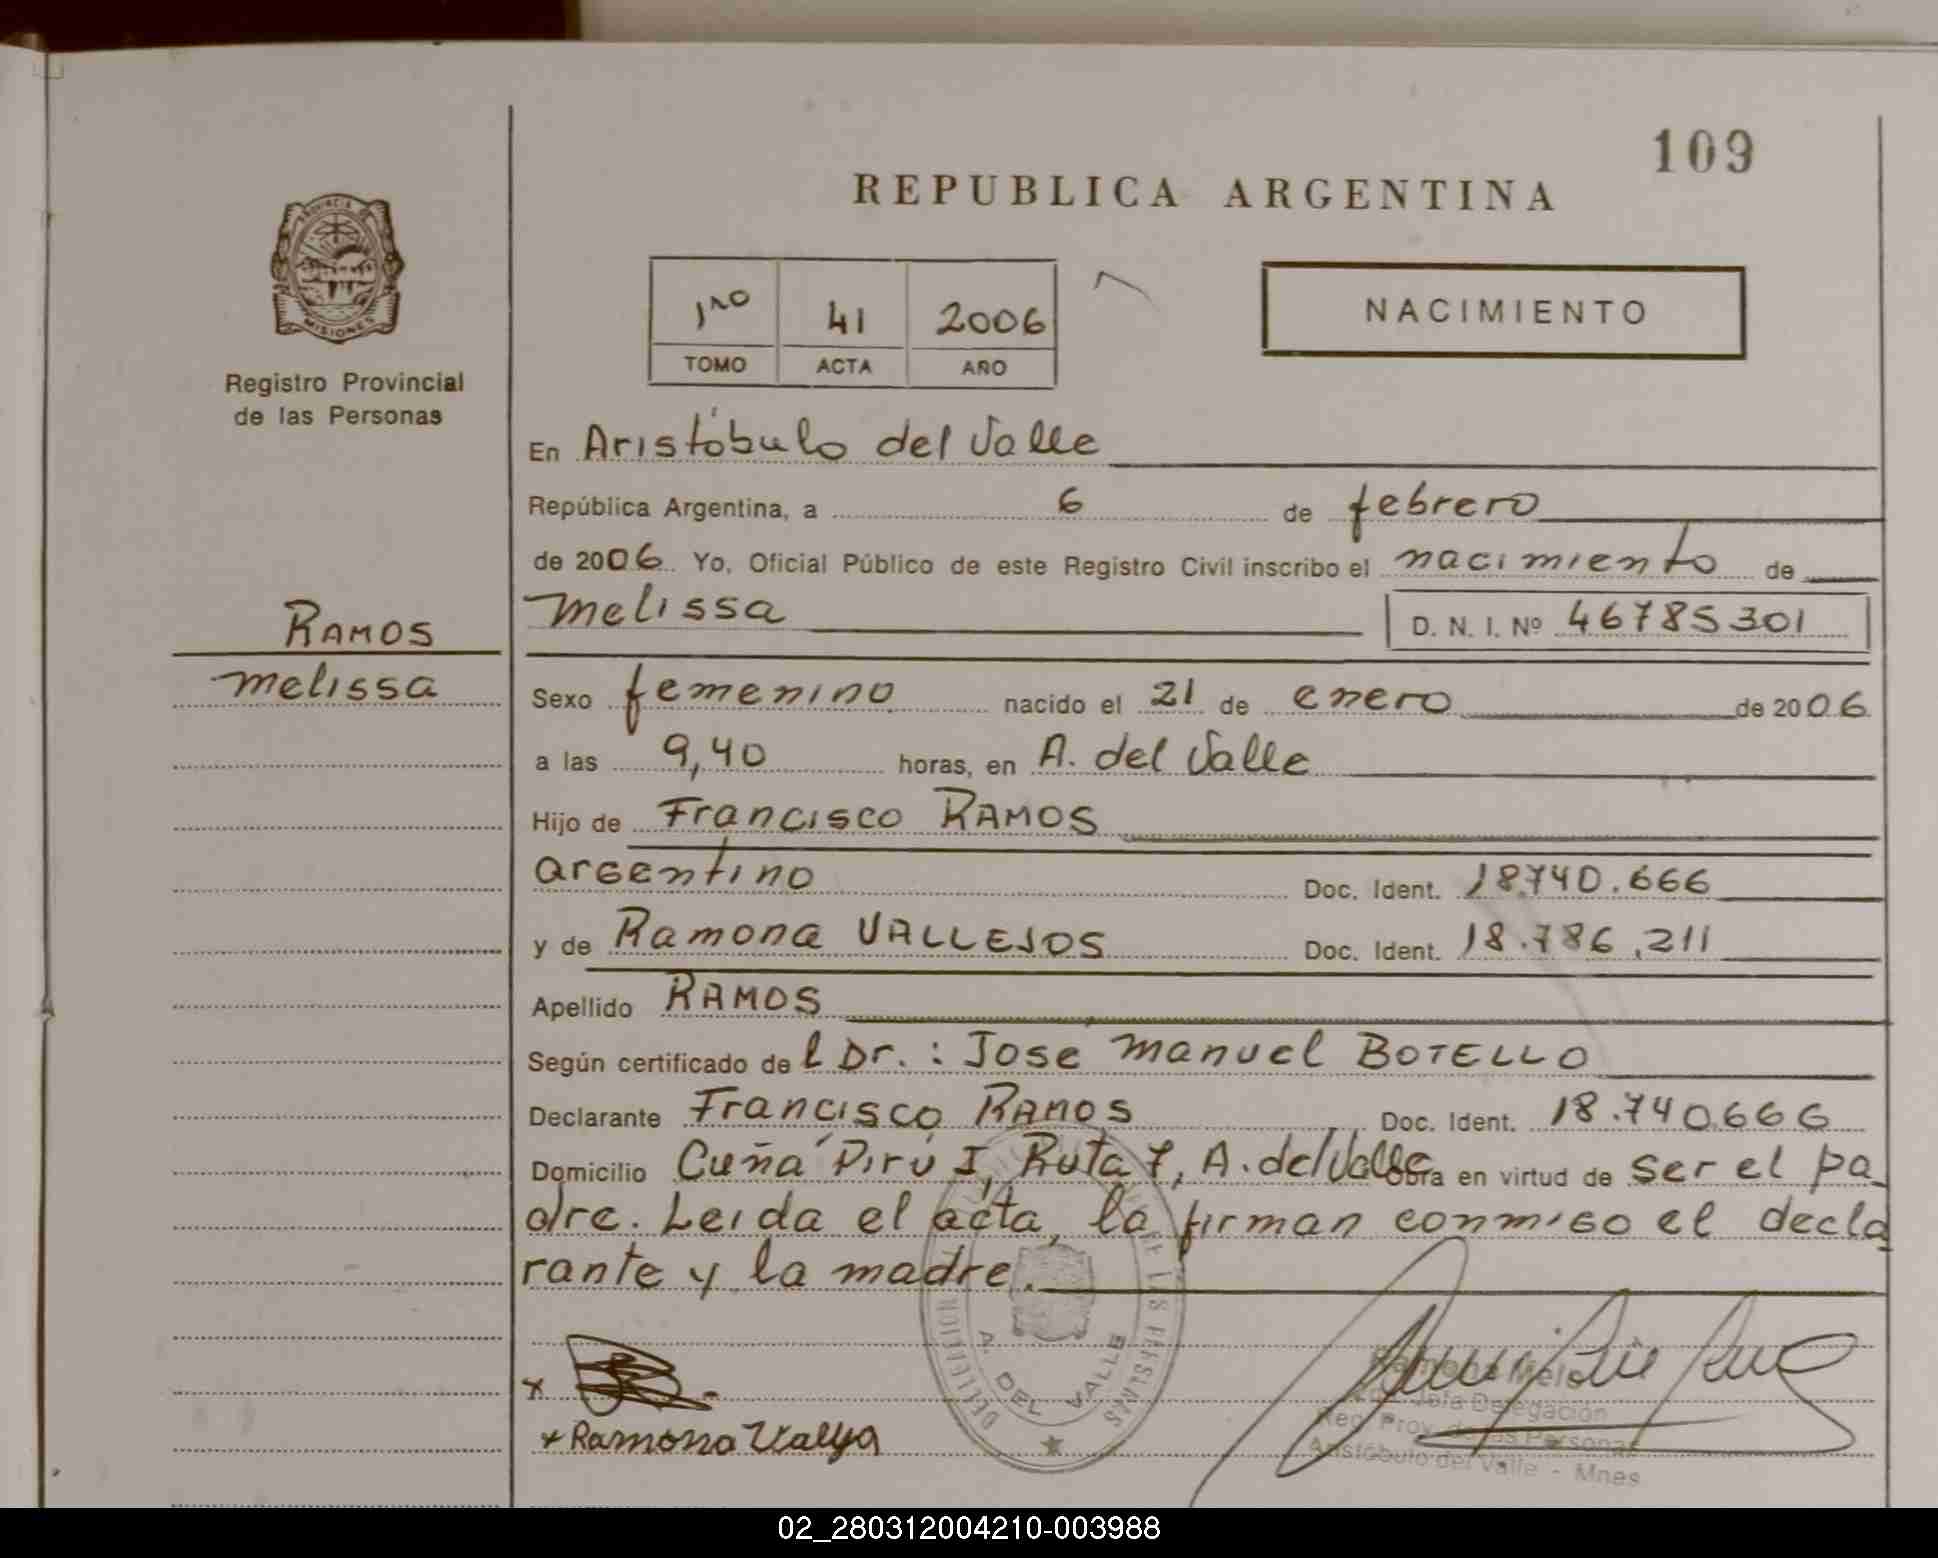 109
REPUBLICA ARGENTINA
PROVINCIA DE
MISIONES
Registro Provincial
de las Personas
1ro 41 2006
TOMO ACTA AÑO
NACIMIENTO
En Aristóbulo del Valle
República Argentina, a 6 de febrero
de 2006. Yo, Oficial Público de este Registro Civil inscribo el nacimiento de
RAMOS
melissa
melissa D. N. I. Nº 46785301
Sexo femenino nacido el 21 de enero de 2006
a las 9,40 horas, en A. del Valle
Hijo de Francisco RAMOS
argentino Doc. Ident. 18.740.666
y de Ramona VALLEJOS Doc. Ident. 18.786.211
Apellido RAMOS
Según certificado de l Dr. : Jose manuel BOTELLO
Declarante Francisco RAMOS Doc. Ident. 18.740.666
Domicilio Cuña Pirú I, Ruta 7, A. del Valle Obra en virtud de ser el pa
dre. Leida el acta, la firman conmigo el decla
rante y la madre.
DELEGACION DE LAS PERSONAS
A. DEL VALLE
x
x Ramona
Ramona Melo
Jefa Delegación
Reg. Prov. de las Personas
Aristóbulo del Valle - Mnes
02_280312004210-003988